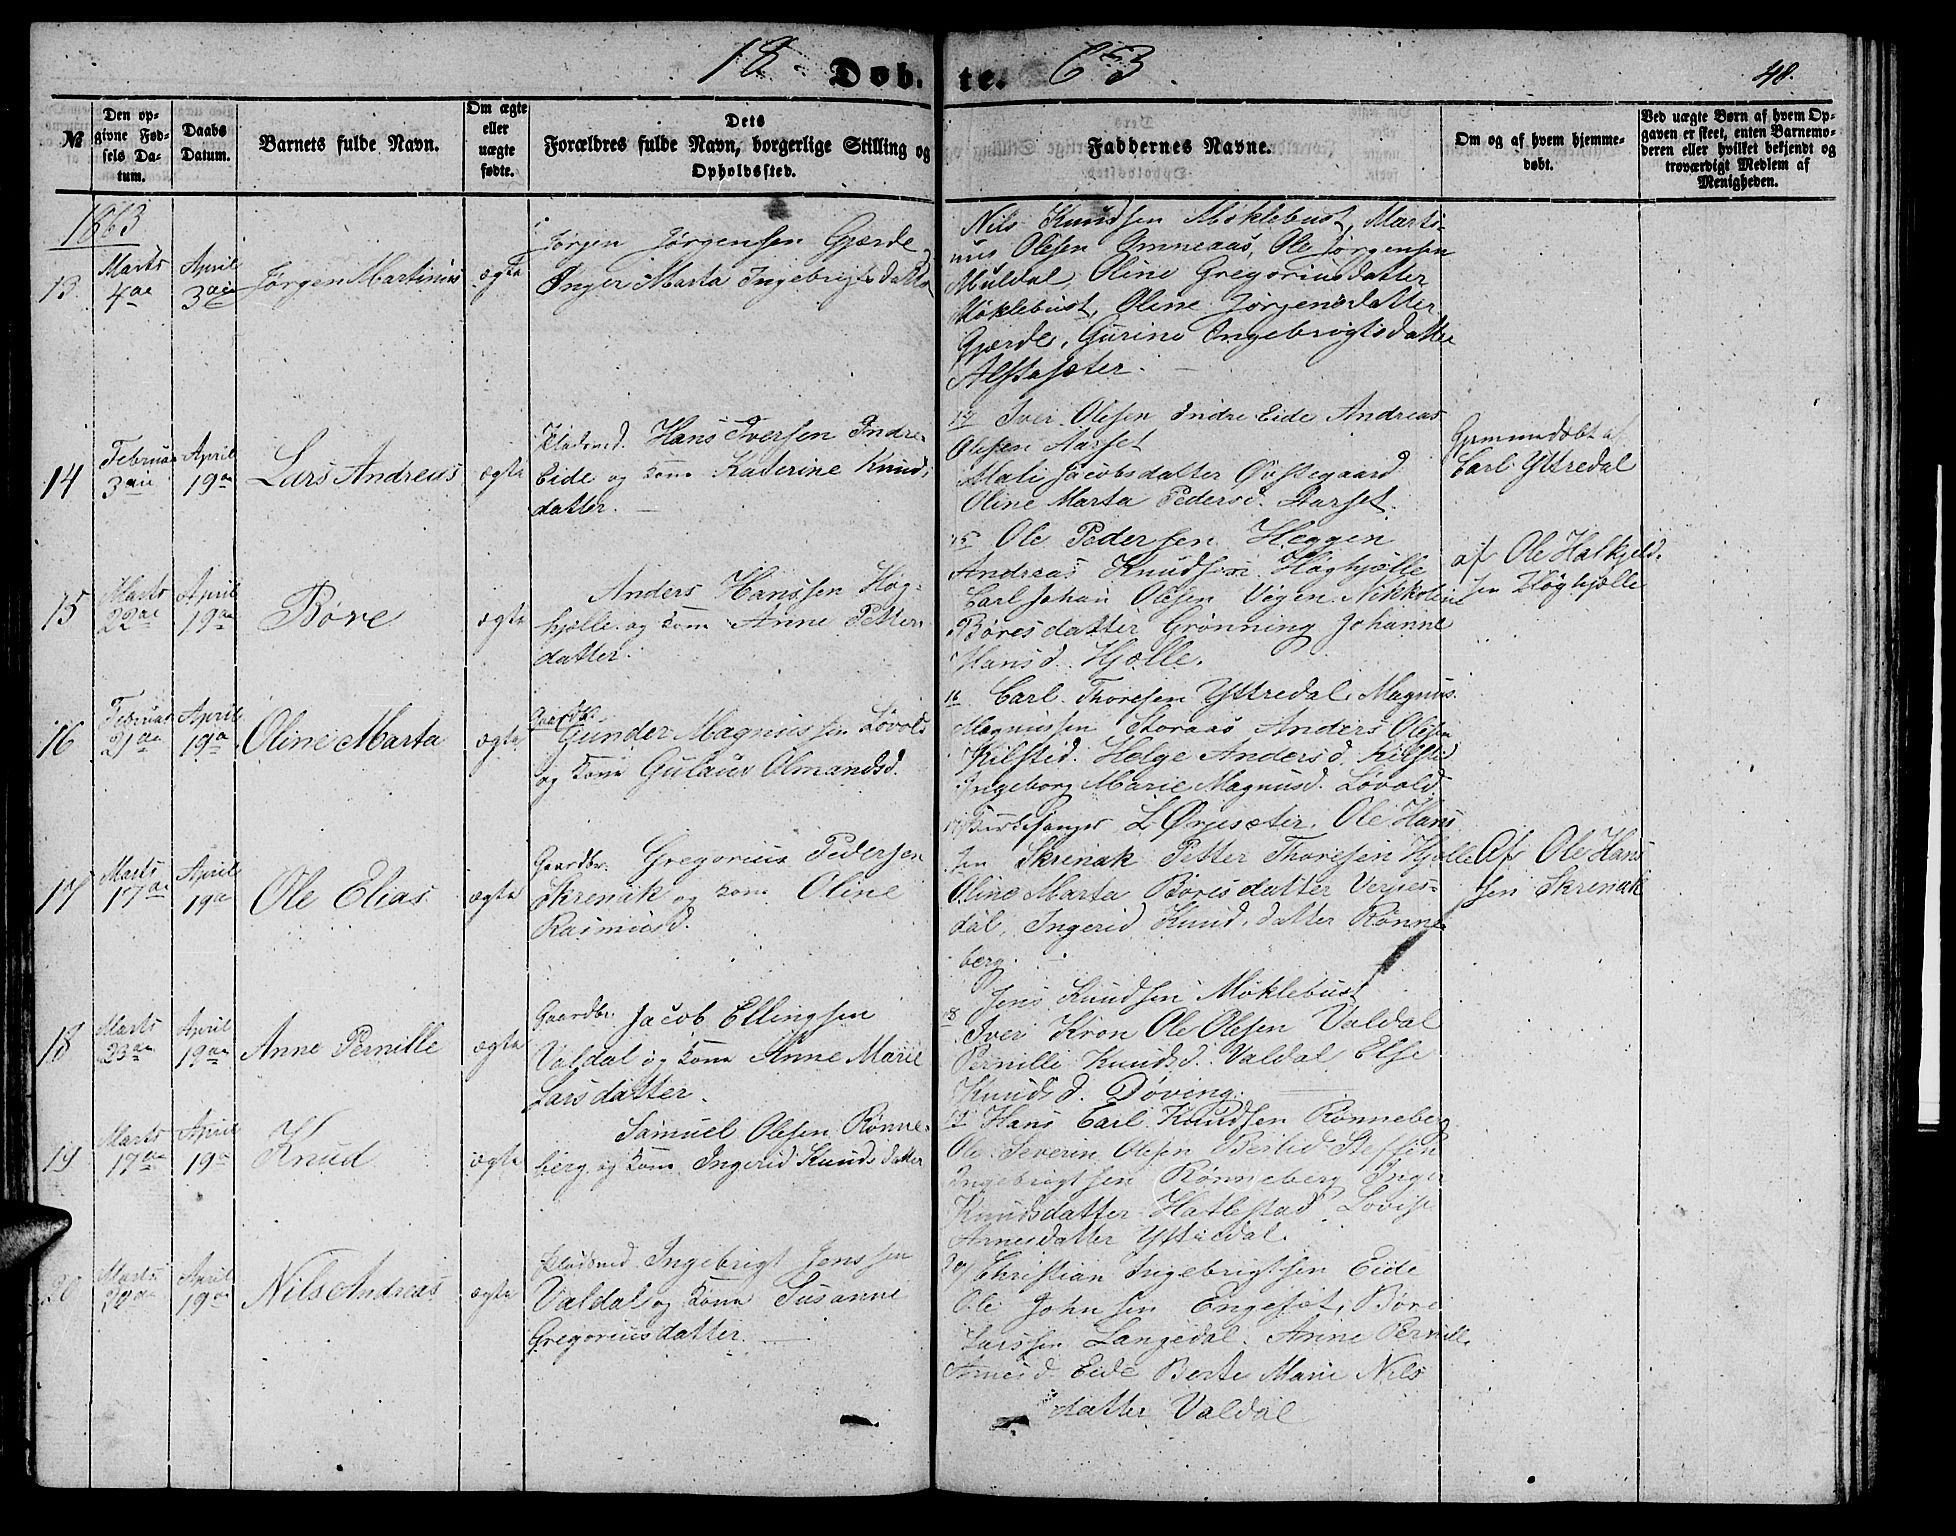 18 Døb. te. 63. 48.
No
Den opgivne Fød-
sels Da-
tum.
Daabs
Datum.
Barnets fulde Navn.
Om ægte
eller
uægte
fødte.
Dets
Forældres fulde Navn, borgerlige Stilling og
Opholdssted.
Faddernes Navne.
Om og af hvem hjemme-
døbt.
Ved uægte Børn af hvem Op-
gaven er skeet, enten Barnemo-
deren eller hvilket bekjendt og
troværdigt Medlem af
Menigheden.
1863
13 Marts 4de April 3die Jørgen Martinus ægte
Jørgen Jørgensen Gjærde
Inger Marta Ingebrigtsdatter
Nils Knudsen Møklebust, Marti-
nus Olesen Omneaas, Ole Jørgensen
Muldal, Oline Gregoriusdatter
Møklebust, Oline Jørgensdatter
Gjærde, Gurine Ingebrigtsdatter
Alstasæter.
14 Februar 3die April 19de Lars Andreas ægte
Pladsmd. Hans Iversen Indre
Eide og kone Katerine Knuds
datter.
14 Iver Olesen Indre Eide Andreas
Olesen Aarset
Mali Jacobsdatter Østegaard
Oline Marta Pedersd. Aarset.
Hjemmedøbt af
Carl Yttredal
15 Marts 22de April 19de Børe ægte
Anders Hanssen Høg-
hjølle og kone Anne Petter-
datter.
15 Ole Pedersen Heggen
Andreas Knudsen Høghjølle
Carl Johan Olesen Vegen Nikkoline
Børesdatter Grønning Johanne
Hansd. Hjølle.
af Ole Halkjeld-
sen Høghjølle
16 Februar 21de April 19de Oline Marta ægte
Gaardbr.
Gunder Magnussen Løvold
og kone Gulaug Olmandsd.
16 Carl Thoresen Yttredal Magnus
Magnussen Storaas Anders Olesen
Kilstid. Helge Andersd. Kilstid
Ingeborg Marie Magnusd. Løvold.
17 Marts 17de April 19de Ole Elias ægte
Gaardbr. Gregorius Pedersen
Skrenak og kone Oline
Rasmusd.
17 Kirkesanger L Ørjesæter, Ole Hans
sen Skrenak Petter Thoresen Hjølle
Oline Marta Børesdatter Verpes-
dal, Ingerid Knudsdatter Rønne
berg.
Af Ole Hans
sen Skrenak
18 Marts 23de April 19de Anne Pernille ægte
Gaardbr. Jacob Ellingsen
Valdal og kone Anne Marie
Larsdatter.
18 Jens Knudsen Møklebust
Iver Kron Ole Olesen Valdal
Pernille Knudsd. Valdal Else
Knudsd. Døving.
19 Marts 17de April 19de Knud ægte
Samuel Olesen Rønne-
berg og kone Ingerid Knudsdatter
19 Hans Carl Knudsen Rønneberg
Ole Severin Olesen Berlid Steffen
Ingebrigtsen Rønneberg Inger
Knudsdatter Hatlestad Lovise
Arnesdatter Yttredal.
20 Marts April 19de Nils Andreas ægte
Pladsmd Ingebrigt Jenssen
Valdal og kone Susanne
Gregoriusdatter.
20 Christian Ingebrigtsen Eide
Ole Johnsen Engeset, Børe
Larssen Langedal. Anne Pernille
Arnesd Eide Berte Marie Nils
datter Valdal